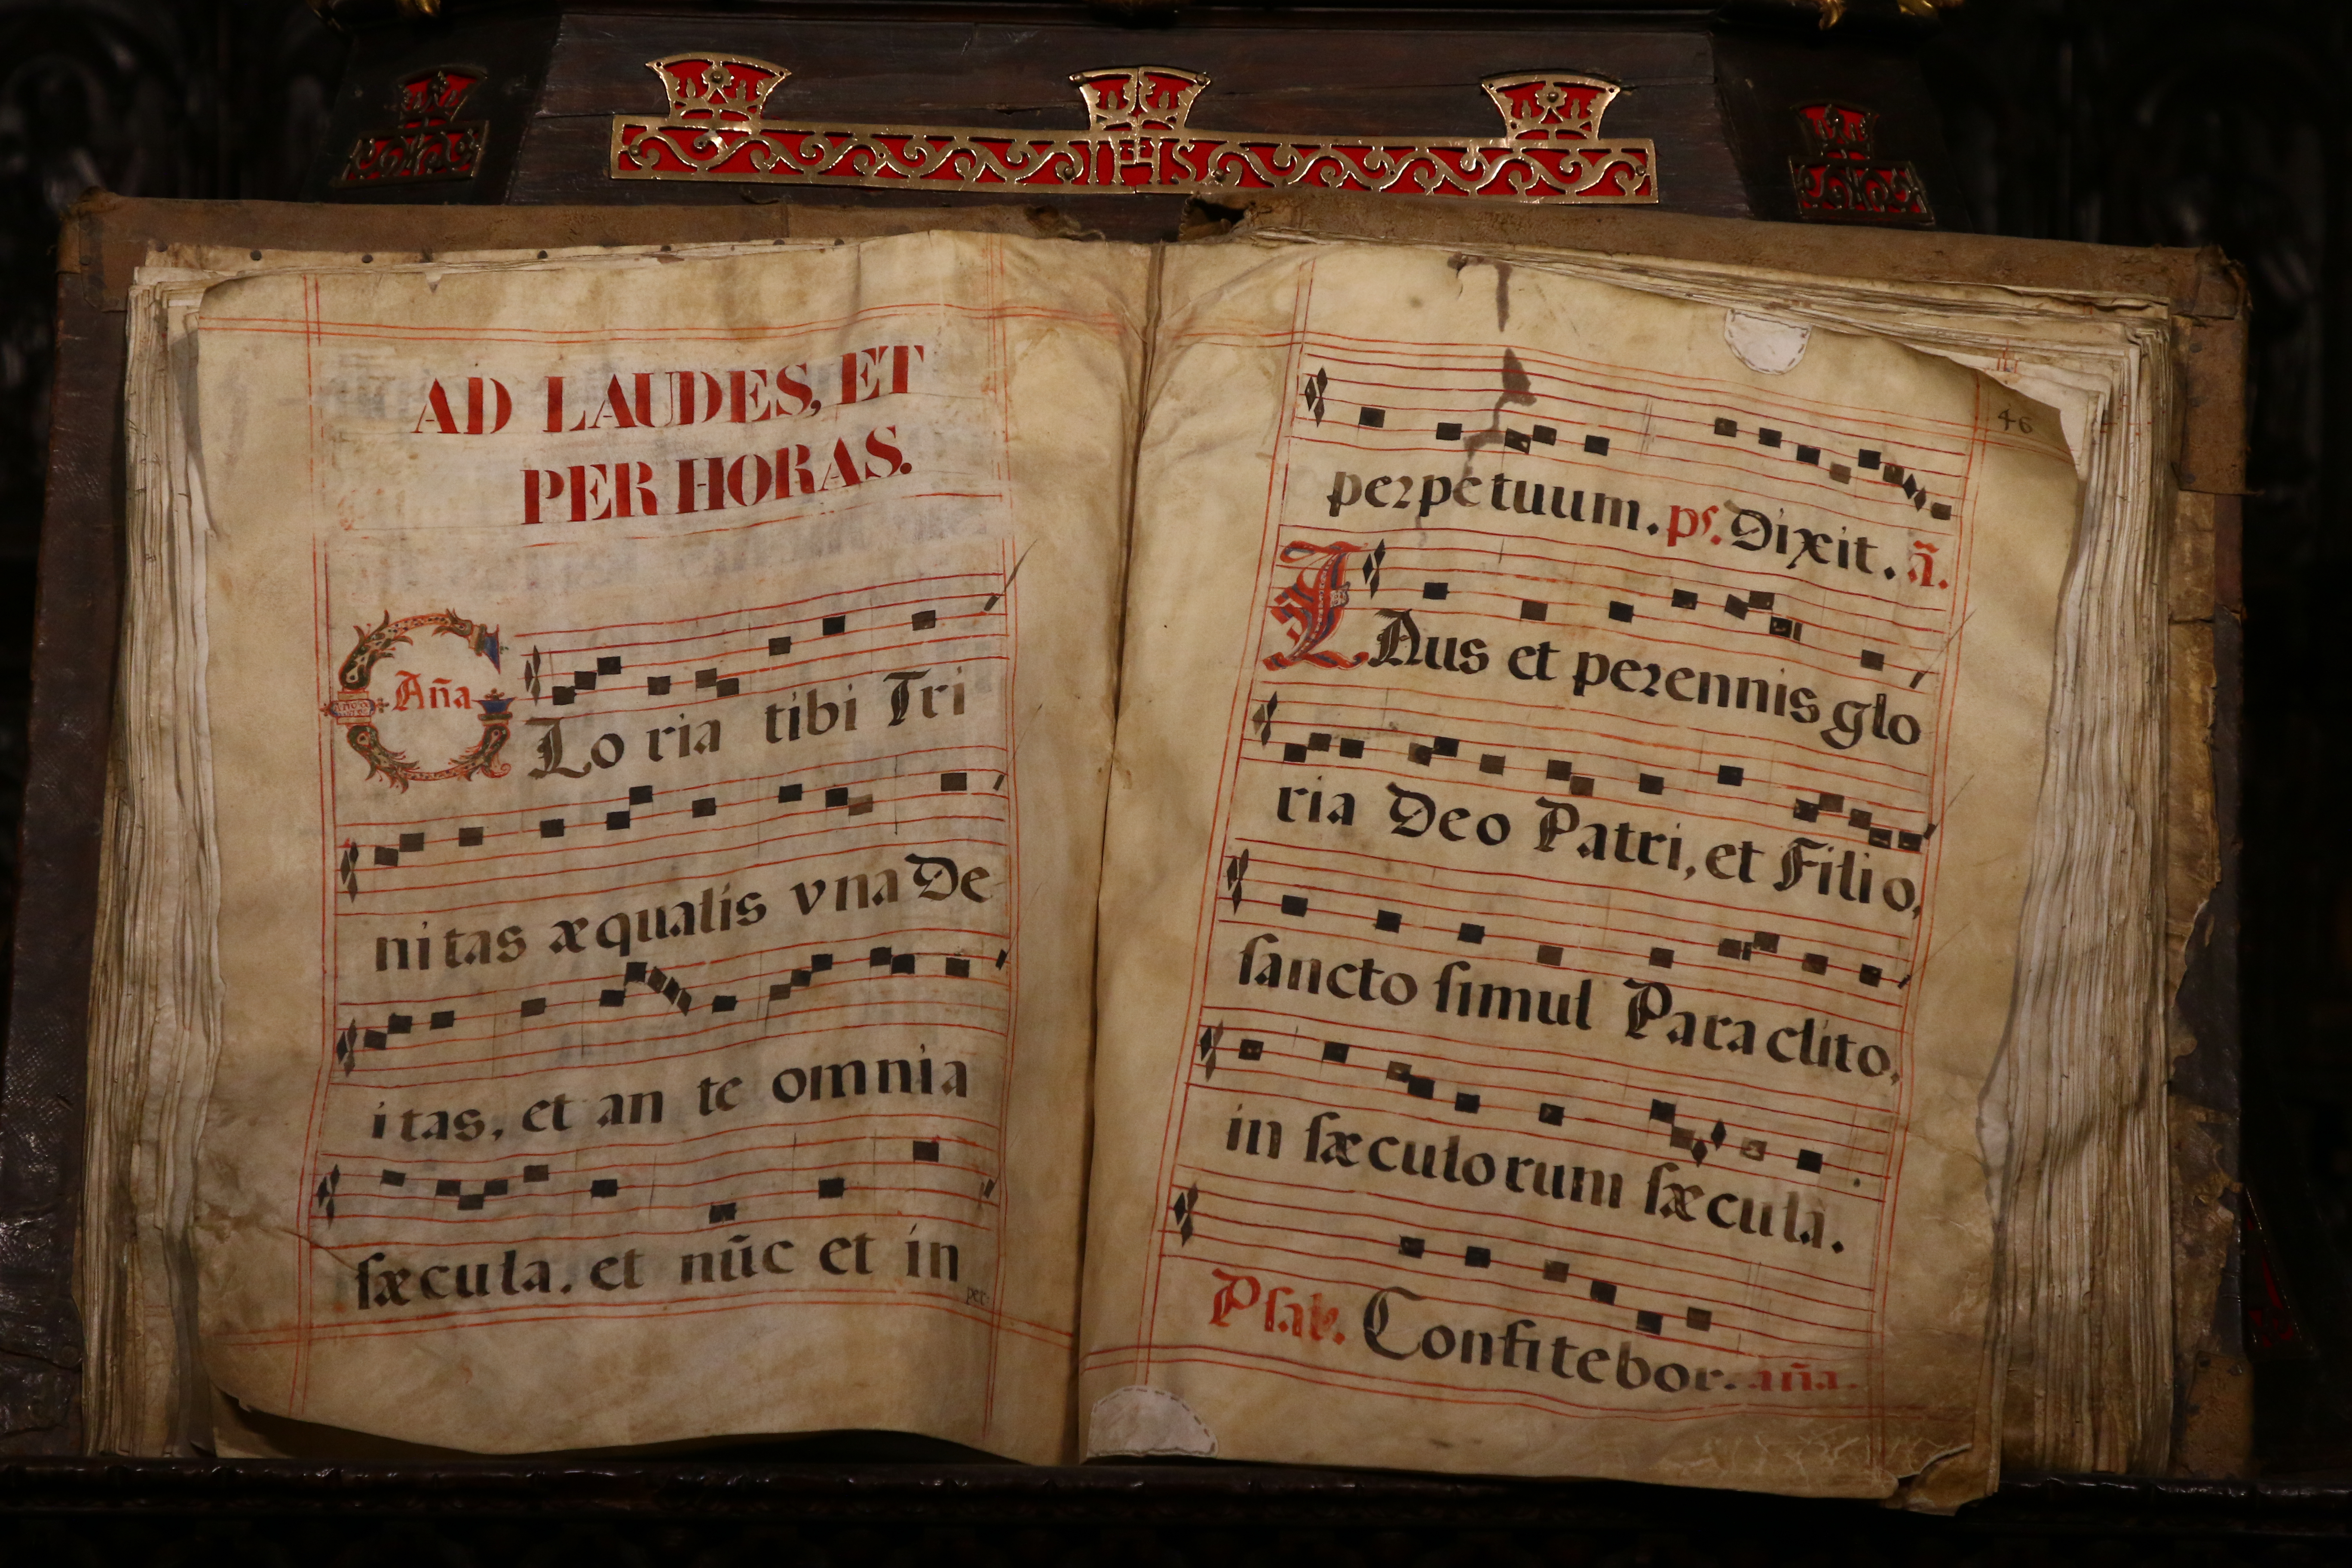 IHS
AD LAUDES, ET
PER HORAS.
Aña
GLo ria tibi Tri
nitas æqualis vna De
itas, et an te omnia
ſæcula. et nūc et in
per-
46
perpetuum. ps. Dixit. ã.
LAus et perennis glo
ria Deo Patri, et Filio,
ſancto ſimul Paraclito,
in ſæculorum ſæcula.
Psal. Confitebor. aña.